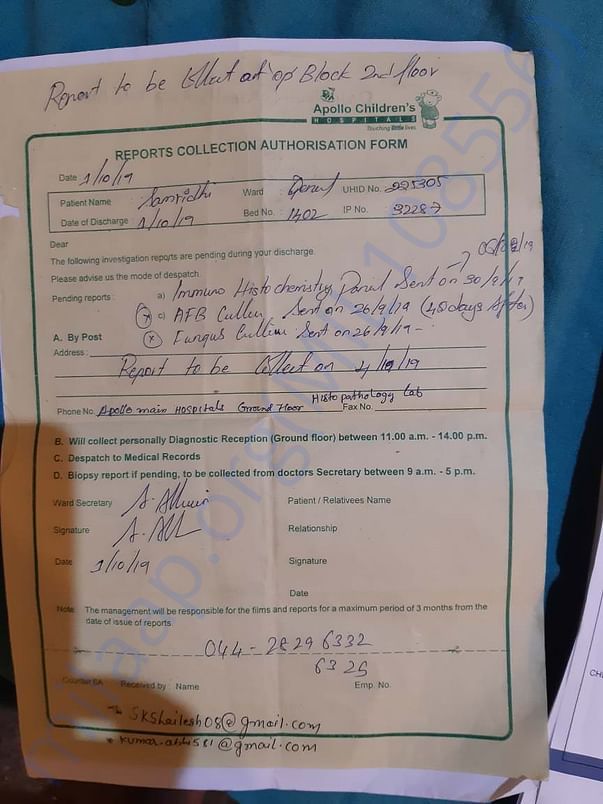 Report to be Collect at op Block 2nd floor
Apollo Children's
HOSPITALS
Touching little lives
REPORTS COLLECTION AUTHORISATION FORM
Date 1/10/19
Patient Name Samridhi Ward UHID No. 225305
Date of Discharge 1/10/19 Bed No. 1402 IP No. 32287
Dear
The following investigation reports are pending during your discharge.
Please advise us the mode of despatch
Pending reports : a) Immuno Histochemistry Panel Sent on 30/9/19
c) AFB Culture Sent on 26/9/19
A. By Post Fungus Culture Sent on 26/9/19 -
Address:
Report to be Collect on
Histopathology Lab
Phone No. Apollo main HOSPITALS Ground Floor Fax No.
B. Will collect personally Diagnostic Reception (Ground floor) between 11.00 a.m. - 14.00 p.m.
C. Despatch to Medical Records
D. Biopsy report if pending, to be collected from doctors Secretary between 9 a.m. - 5 p.m.
Ward Secretary Patient / Relativees Name
Signature Relationship
Date 1/10/19 Signature
Date
Note The management will be responsible for the films and reports for a maximum period of 3 months from the
date of issue of reports
044-28296332
6325
Counter 6A Received by : Name Emp. No.
SKShailesh08@gmail.com
kumar.abhi581@gmail.com